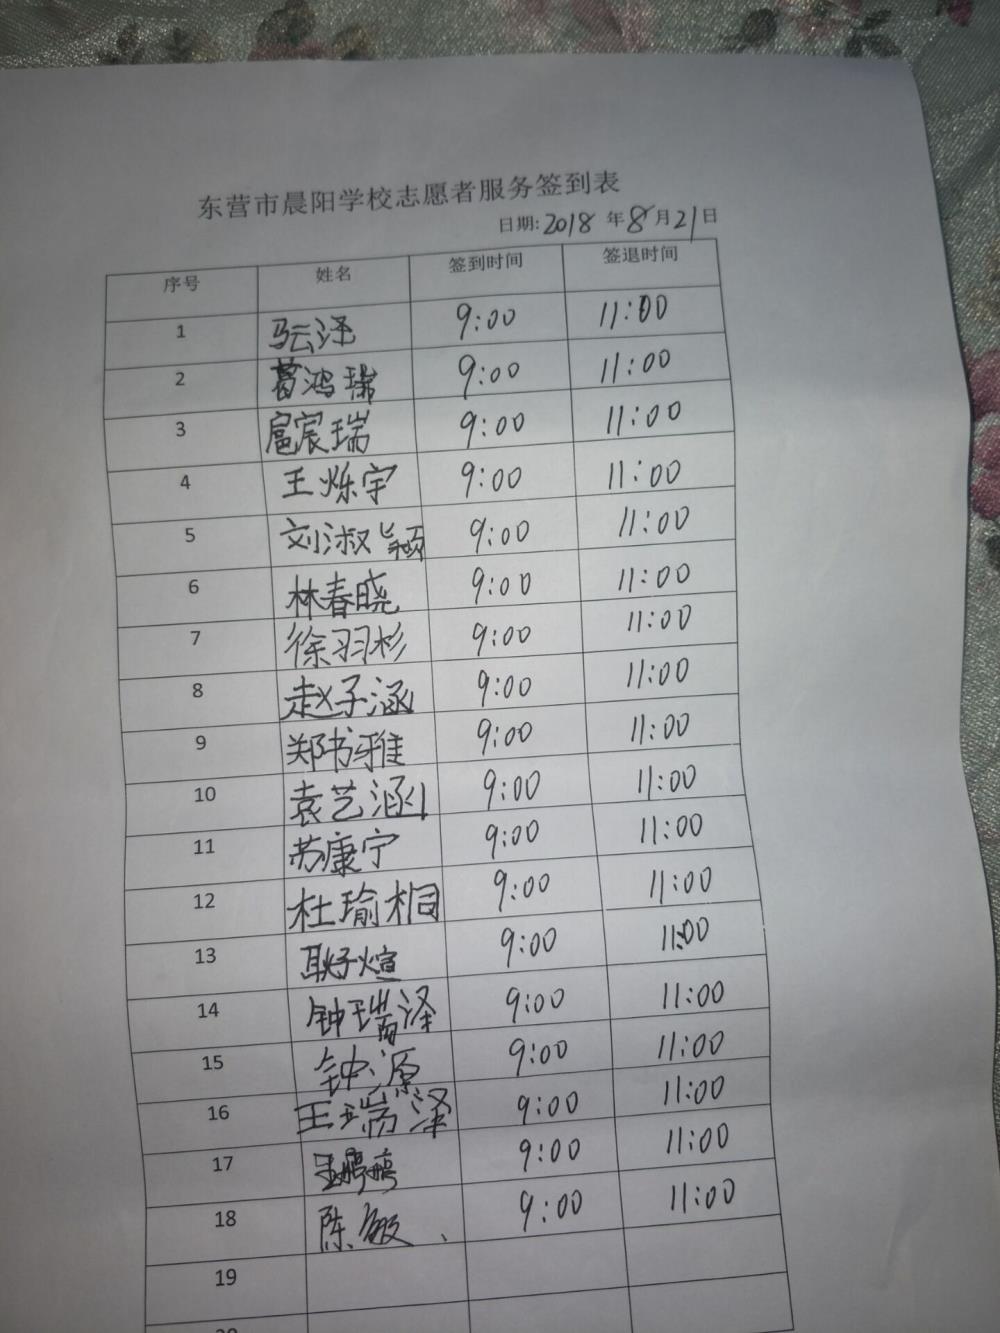 东营市晨阳学校志愿者服务签到表
日期:2018 年 8 月 21 日
序号 姓名 签到时间 签退时间
1 马云泽 9:00 11:00
2 葛鸿瑞 9:00 11:00
3 扈宸瑞 9:00 11:00
4 王烁宇 9:00 11:00
5 刘淑颖 9:00 11:00
6 林春晓 9:00 11:00
7 徐羽杉 9:00 11:00
8 赵子涵 9:00 11:00
9 郑书雅 9:00 11:00
10 袁艺涵 9:00 11:00
11 苏康宁 9:00 11:00
12 杜瑜桐 9:00 11:00
13 耿子煊 9:00 11:00
14 钟瑞泽 9:00 11:00
15 钟源 9:00 11:00
16 王瑞泽 9:00 11:00
17 9:00 11:00
18 陈敏 9:00 11:00
19